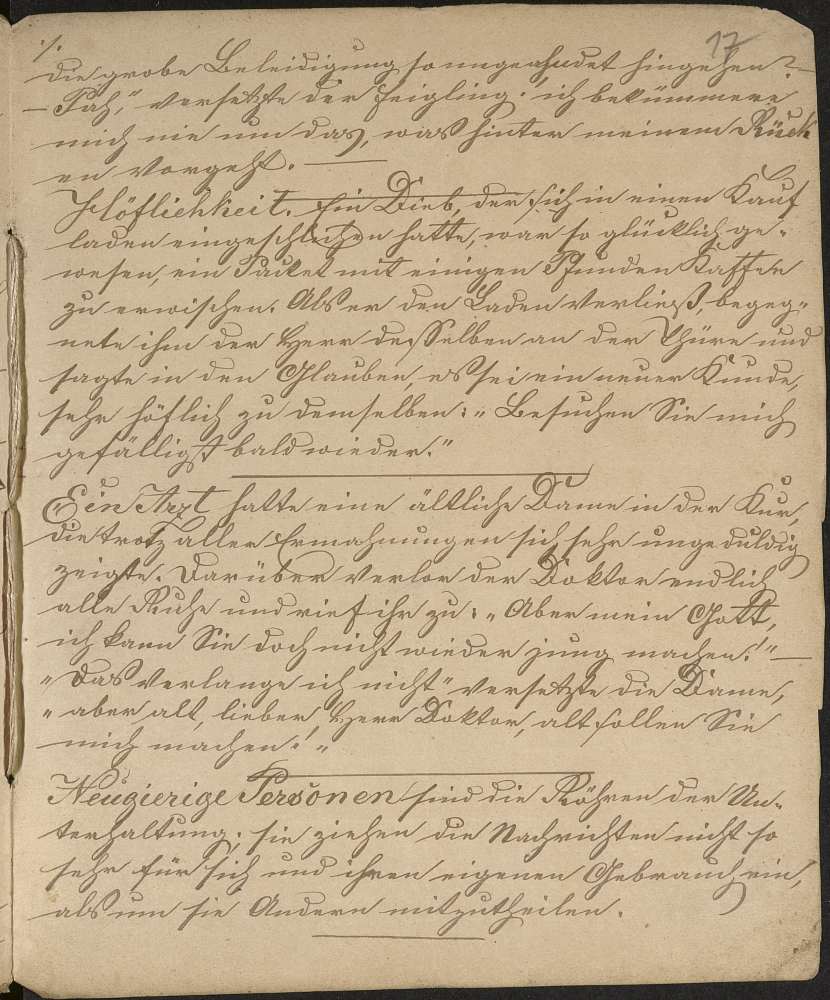 17
./.
die grobe Beleidigung so ungeahndet hingehen? –
– Pah," versetzte der Feigling: "ich bekümmere
mich nie um das, was hinter meinem Rück
en vorgeht. —
Höflichkeit. Ein Dieb, der sich in einen Kauf
laden eingeschlichen hatte, war so glücklich ge-
wesen, ein Packet mit einigen Pfunden Kaffee
zu erwischen. Als er den Laden verließ, begeg-
nete ihm der Herr desselben an der Thüre und
sagte in den Glauben, es sei ein neuer Kunde,
sehr höflich zu demselben: „Besuchen Sie mich
gefälligst bald wieder."
Ein Arzt hatte eine ältliche Dame in der Kur,
die trotz aller Ermahnungen sich sehr ungeduldig
zeigte. Darüber verlor der Doktor endlich
alle Ruhe und rief ihr zu: „Aber mein Gott,
ich kann Sie doch nicht wieder jung machen!" —
"Das verlange ich nicht" versetzte die Dame,
"aber alt, lieber Herr Doktor, alt sollen Sie
mich machen!"
Neugierige Personen sind die Röhren der Un-
terhaltung; sie ziehen die Nachrichten nicht so
sehr für sich und ihren eigenen Gebrauch ein,
als um sie Andern mitzutheilen.